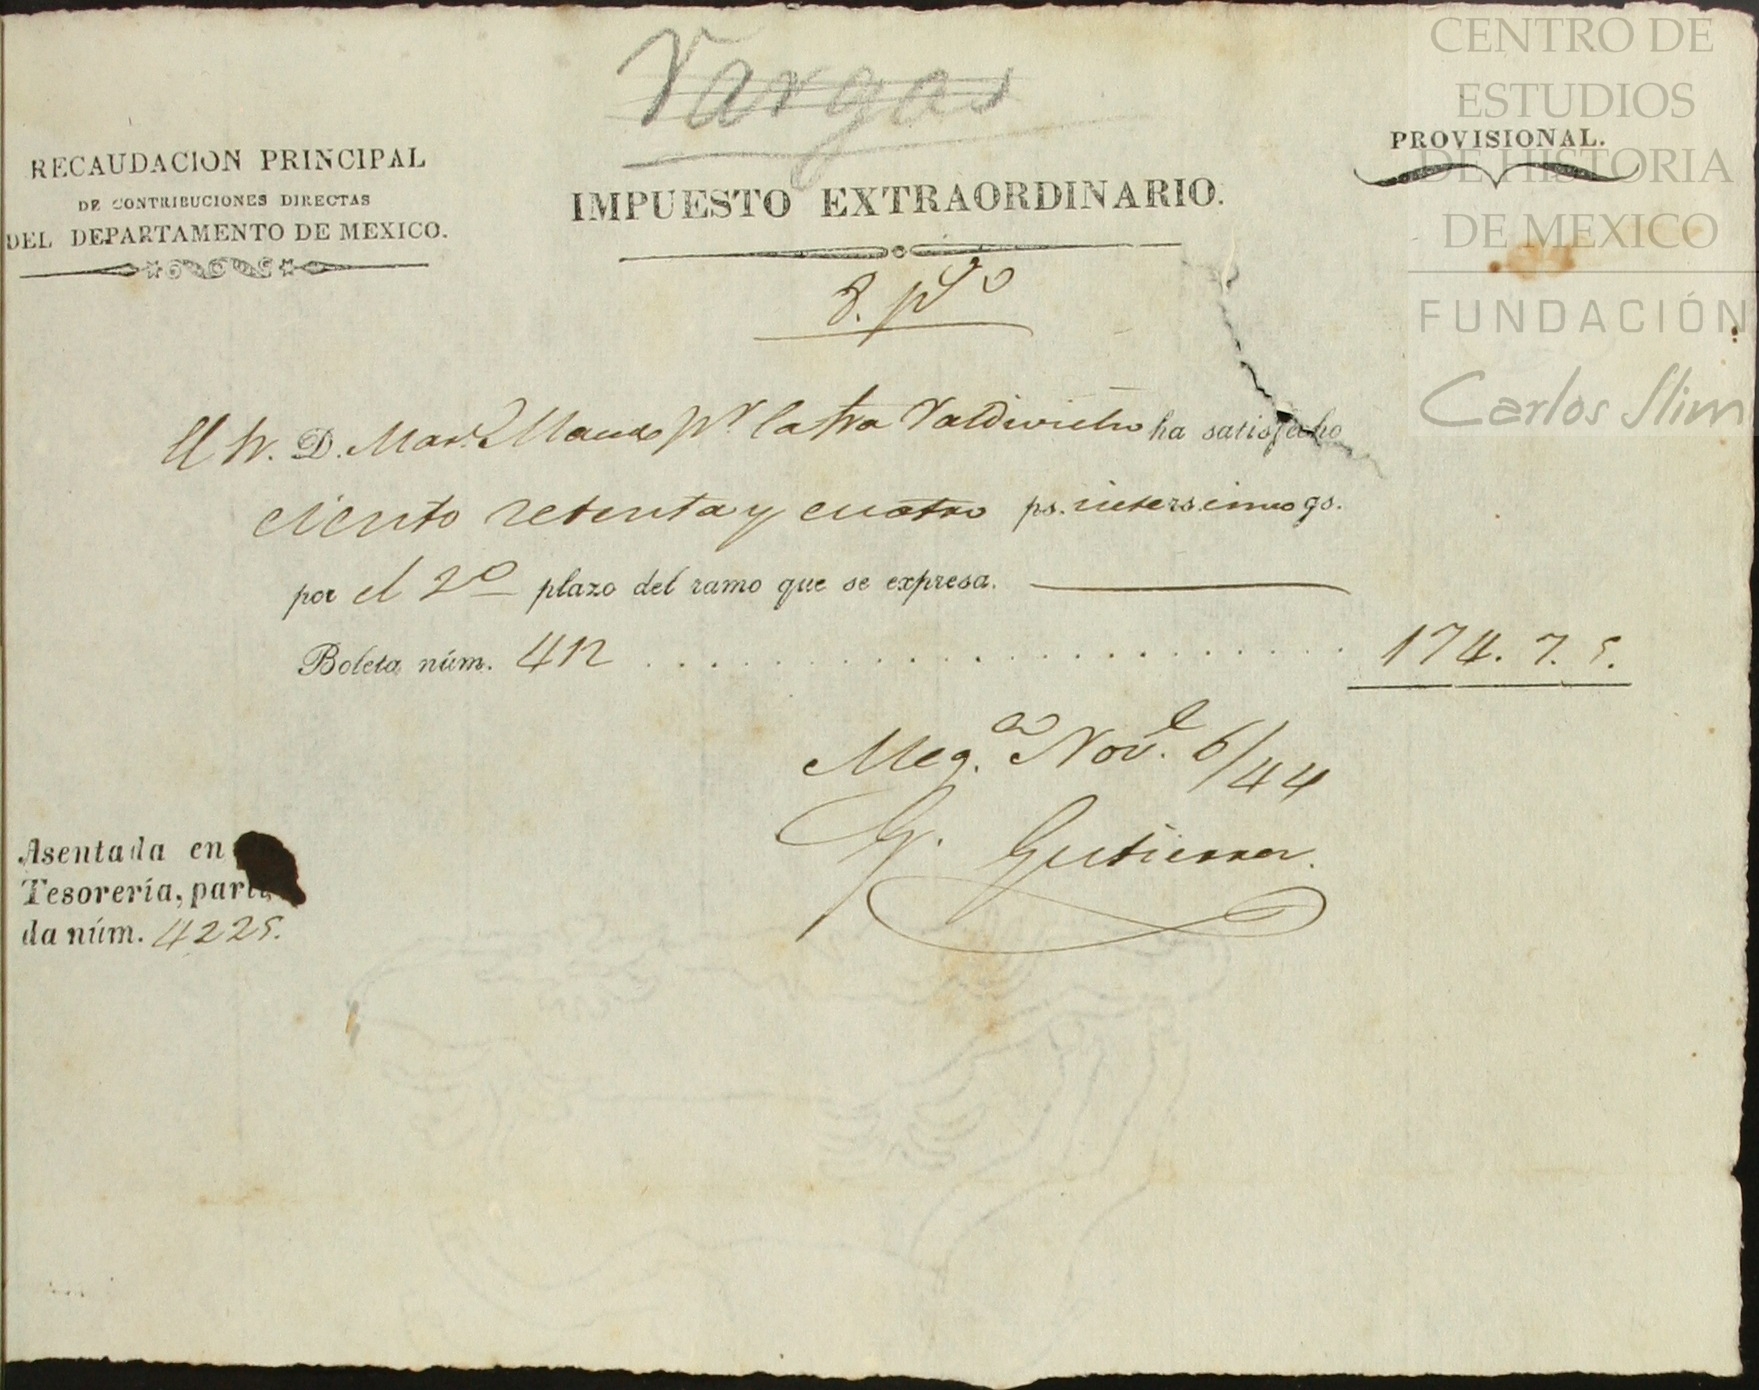 Vargas
RECAUDACION PRINCIPAL
DE CONTRIBUCIONES DIRECTAS
DEL DEPARTAMENTO DE MEXICO.
IMPUESTO EXTRAORDINARIO.
PROVISIONAL.
CENTRO DE
ESTUDIOS
DE HISTORIA
DE MEXICO
FUNDACIÓN
Carlos Slim
El Sr. D. Mar. pr. la Sra Valdivielso ha satisfecho
ciento setenta y cuatro ps. siete rs. cinco gs.
por el 2º plazo del ramo que se expresa.
Boleta núm. 412 . . . . . . . . . . . . . . . . . . . . . . . . 174. 7. 5.
Nove. 6/44
Gutierrez.
Asentada en
Tesorería, parti-
da núm. 4225.